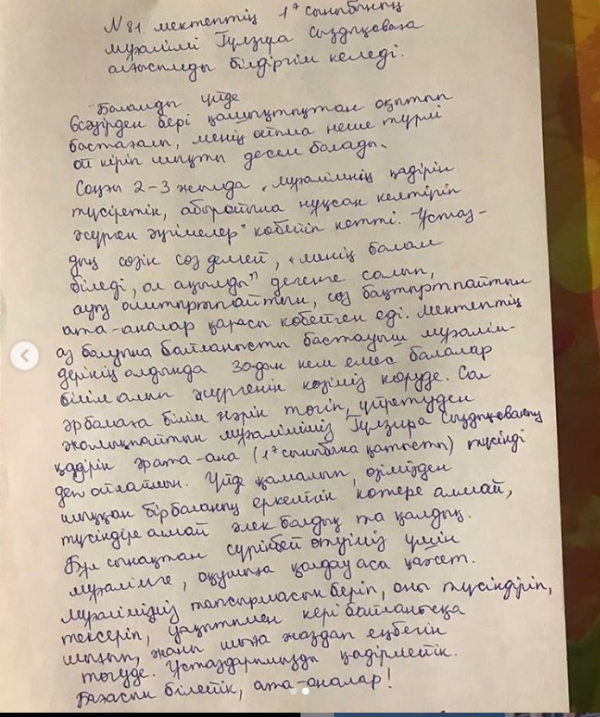 N 81 мектептің 1 "г" сыныбының
мұғалімі Гүлзира Сыздықоваға
алғысымды білдіргім келеді.
"Баламды үйде
6 сәуірден бері қашықтықтан оқытып
бастағалы, менің ойыма неше түрлі
ой кіріп шықты десем болады.
Соңғы 2-3 жылда "мұғалімнің қадірін
түсіретін, абыройына нұқсан келтіріп
жүрген әңгімелер" көбейіп кетті. Ұстаз-
дың сөзін сөз демей, "менің балам
біледі, ол ақылды" дегенге салып,
ауыз аштырғызбайтын, сөз бақтыртпайтын
ата-аналар қарасы көбейген еді. Мектептің
аз болуына байланысты бастауыш мұғалім-
дерінің алдында 30дан кем емес балалар
білім алып жүргенін көзіміз көруде. Сол
әр балаға білім нәрін төгіп, үйретуден
жалықпайтын мұғаліміміз Гүлзира Сыздықованың
қадірін әр ата-ана (1 "г" сыныбына қатысты) түсінді
деп ойлаймын. Үйде қамалып, өзімізден
шыққан бір баланың еркелігін көтере алмай,
түсіндіре алмай әлек болдық та қалдық.
Бұл сынақтан сүрінбей өтуіміз үшін
мұғалімге, оқушыға қолдау аса қажет.
Мұғаліміміз тапсырмасын беріп, оны түсіндіріп,
тексеріп, уақытымен кері байланысқа
шығып, жаны шыға жаздап еңбегін
төгуде. Ұстаздарымызды қадірлейік.
Бағасын білейік, ата-аналар!